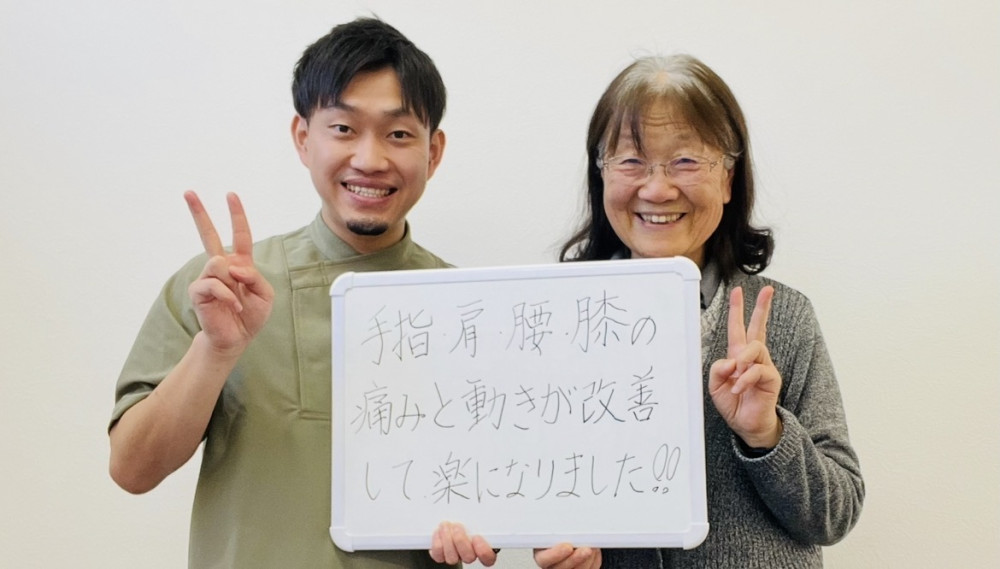 手指・肩・腰・膝の
痛みと動きが改善
して楽になりました!!